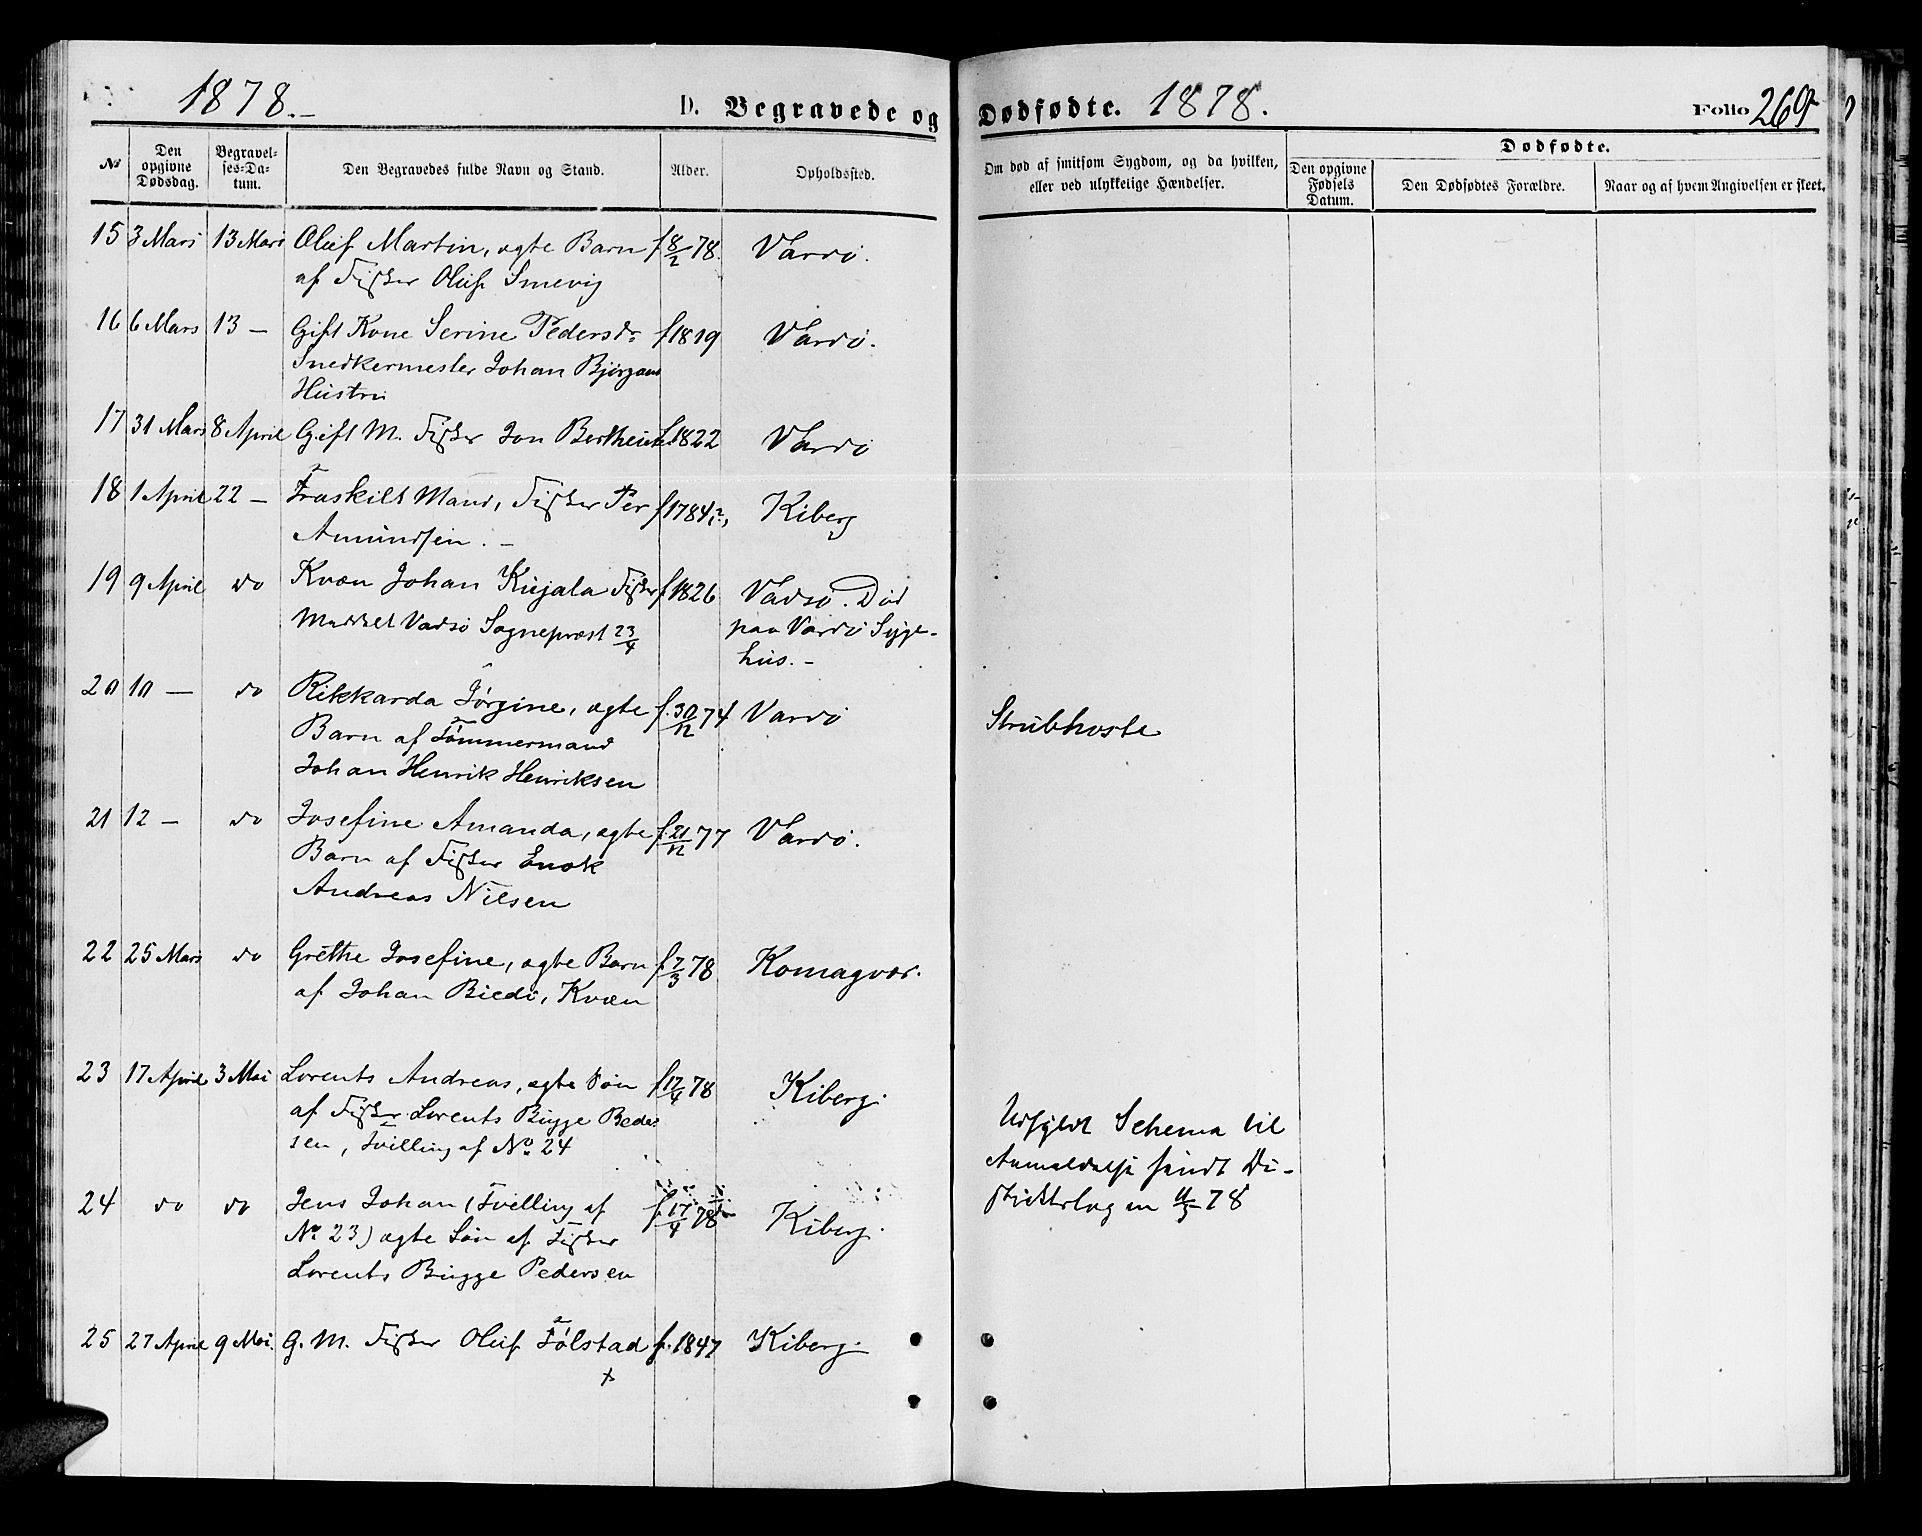 1878.-
D. Begravede og
Dødfødte. 1878.
Folio 269
No
Den opgivne Dødsdag.
Begravel-ses-Da-tum.
Den Begravedes fulde Navn og Stand.
Alder.
Opholdssted.
Om død af smitsom Sygdom, og da hvilken,
eller ved ulykkelige Hændelser.
Dødfødte.
Den opgivne Fødsels Datum.
Den Dødfødtes Forældre.
Naar og af hvem Angivelsen er skeet.
15 3 Mars 13 Mars Oluf Martin, ægte Barn f 8/2 78. Vardö.
af Fisker Oluf Smevig
16 6 Mars 13 — Gift Kone Serine Pedersdr f 1819 Vardö.
Snedkermester Johan Björgans
Hustru
17 31 Mars 8 April Gift M. Fisker Jon f 1822 Vardö
18 1 April 22 — Fraskilt Mand, Fisker Per f 1784?, Kiberg
Amundsen. –
19 9 April do Kvæn Johan Kujala Fisker f 1826 Vadsö. Död
Meddelt Vadsö Sognepræst 23/4 paa Vardö Syge-
hus. –
20 10 — do Rikkarda Jörgine, ægte f. 30/12 74 Vardö Strubhoste
Barn af Tömmermand
Johan Henrik Henriksen
21 12 — do Josefine Amanda, ægte f. 21/12 77 Vardö.
Barn af Fisker Enok
Andreas Nilsen
22 25 Mars do Grethe Josefine, ægte Barn f. 7/3 78 Komagvær.
af Johan Biedi, Kvæn
23 17 April 3 Mai Lorents Andreas, ægte Sön f 17/4 78 Kiberg.
af Fisker Lorents Bugge Peder-
sen, Tvilling af No 24
Udfyldt Schema til
Anmeldelse sendt Di-
striktslægen 11/5 78
24 do do Jens Johan (Tvilling af f. 17/4 78 Kiberg.
No 23) ægte Sön af Fisker
Lorents Bugge Pedersen
25 27 April 9 Mai. G. M. Fisker Oluf Tölstad f. 1847 Kiberg.